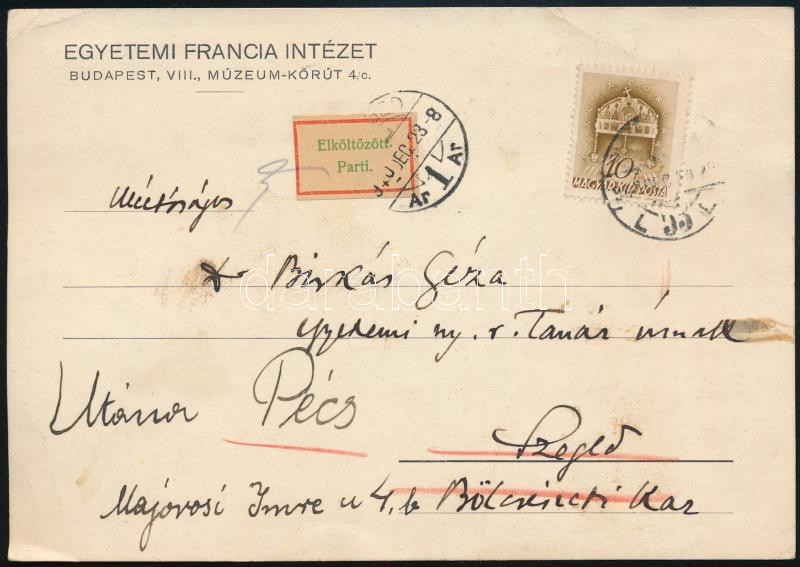 EGYETEMI FRANCIA INTÉZET
BUDAPEST, VIII., MÚZEUM-KÖRÚT 4/c.
Elköltözött.
Parti.
940 DEC. 23-8
Ar 1 Ar
10
MAGYAR KIR. POSTA
Méltóságos
dr Birkás Géza
egyetemi ny. r. Tanár úrnak
Utána Pécs
Szeged
Majorosi Imre u 4.b Bölcsészeti Kar
darabanth